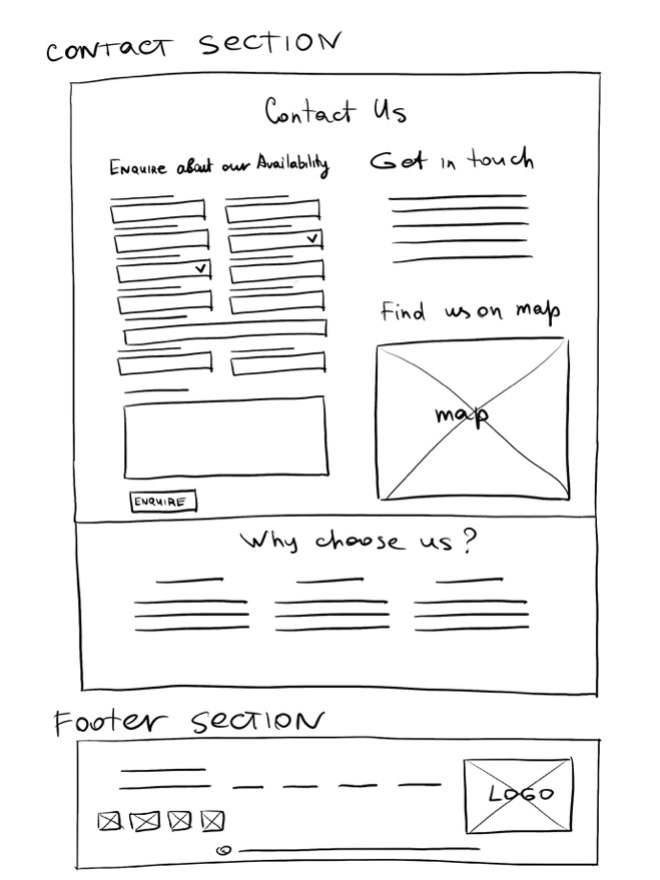 CONTACT SECTION
Contact Us
ENQUIRE about our Availability
Get in touch
Find us on map
map
ENQUIRE
Why choose us?
Footer SECTION
LOGO
©